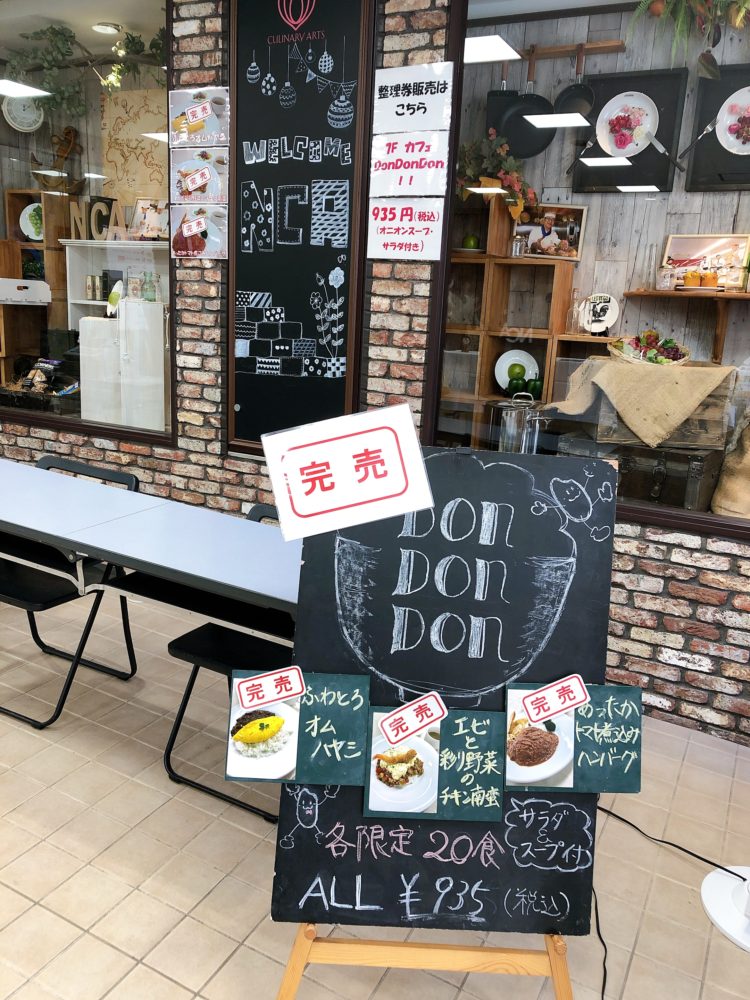 CULINARY ARTS
WELCOME
NCA
完売
完売
完売
整理券販売は
こちら
1F カフェ
DonDonDon
!!
935円(税込)
(オニオンスープ・
サラダ付き)
NCA
完売
DON
DON
DON
完売
ふわとろ
オム
ハヤシ
完売
エビ
と
彩り野菜
の
チキン南蛮
完売
あったか
トマト煮込み
ハンバーグ
各限定 20食
サラダ
&
スープ付
ALL ¥935 (税込)